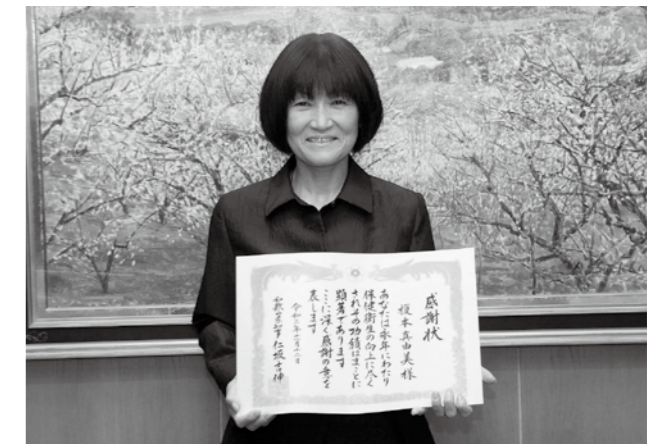 感謝状
榎本真由美様
あなたは永年にわたり
保健衛生の向上に尽く
されその功績はまことに
顕著であります
ここに深く感謝の意を
表します
令和二年十一月十二日
和歌山県知事 仁坂吉伸